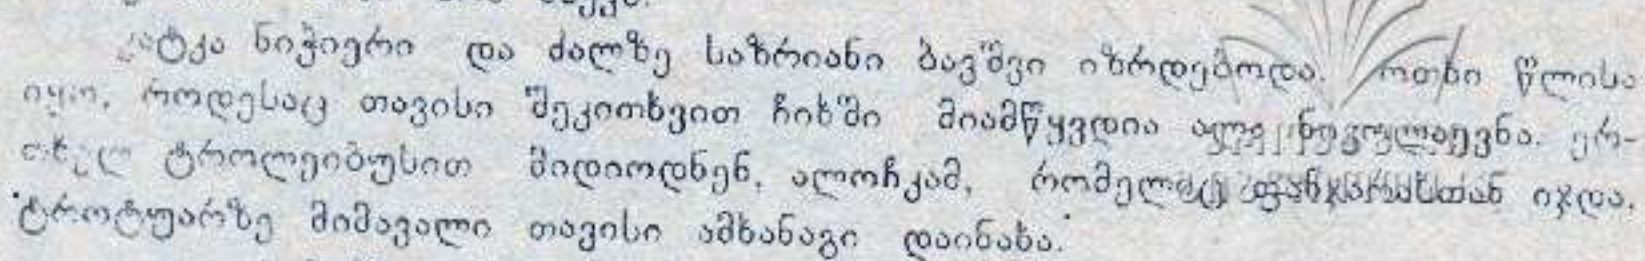 ნიჭიერი და ძალზე საზრიანი ბავშვი იზრდებოდა. ოთხი წლისა
იყო, როდესაც თავისი შეკითხვით ჩიხში მიამწყვდია ერ-
თხელ ტროლეიბუსით მიდიოდნენ, ალოჩკამ, რომელიც ფანჯარასთან იჯდა,
ტროტუარზე მიმავალი თავისი ამხანაგი დაინახა.